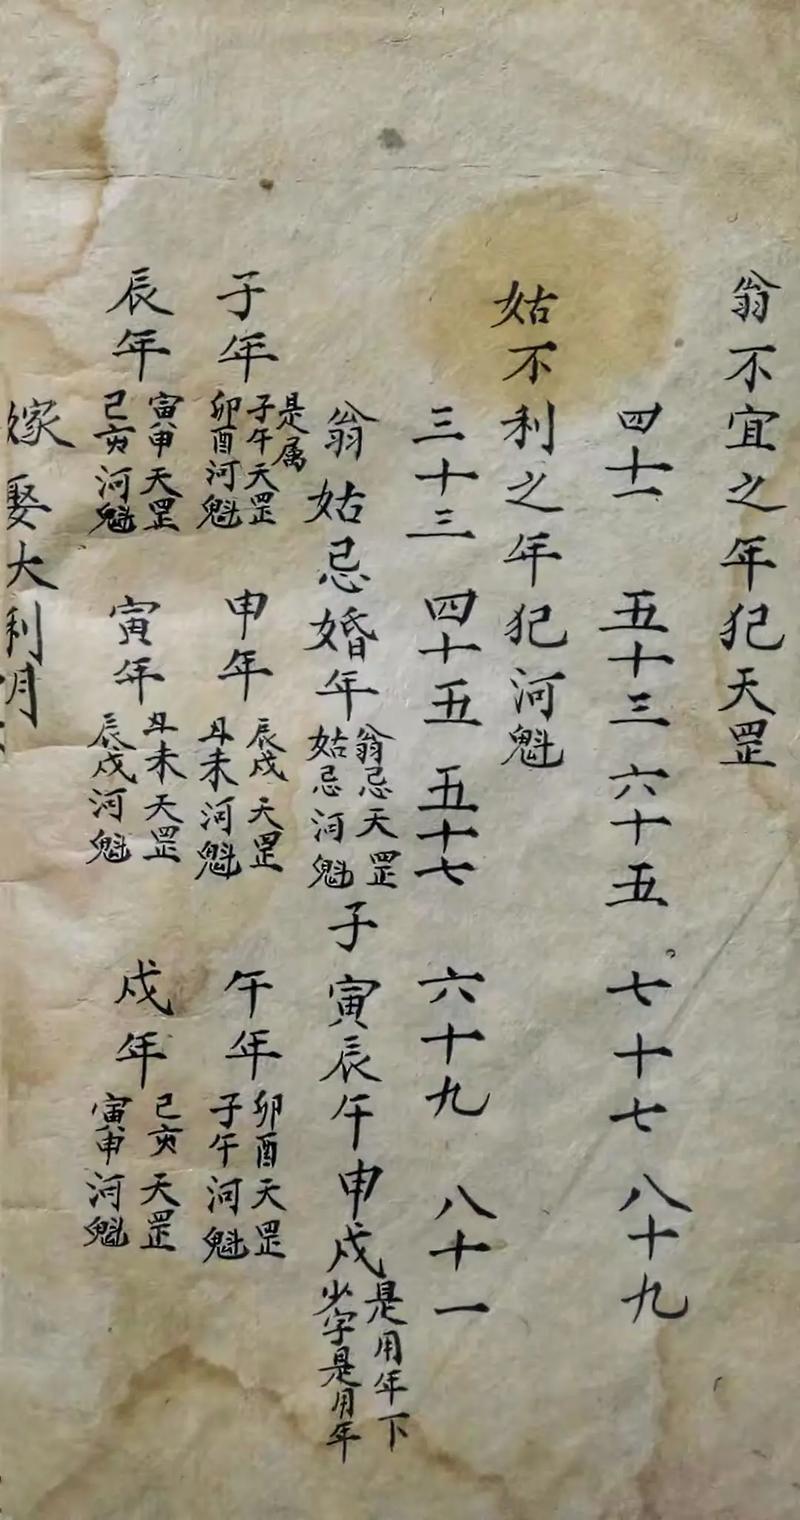 翁不宜之年犯天罡
四十一 五十三 六十五 七十七 八十九
姑不利之年犯河魁
三十三 四十五 五十七 六十九 八十一
翁姑忌婚年
翁忌天罡
姑忌河魁
子寅辰午申戌
是用年下
少字是用年
是属
子年
子午天罡
卯酉河魁
申年
辰戌天罡
丑未河魁
午年
卯酉天罡
子午河魁
辰年
寅申天罡
己亥河魁
寅年
丑未天罡
辰戌河魁
戌年
己亥天罡
寅申河魁
嫁娶大利月